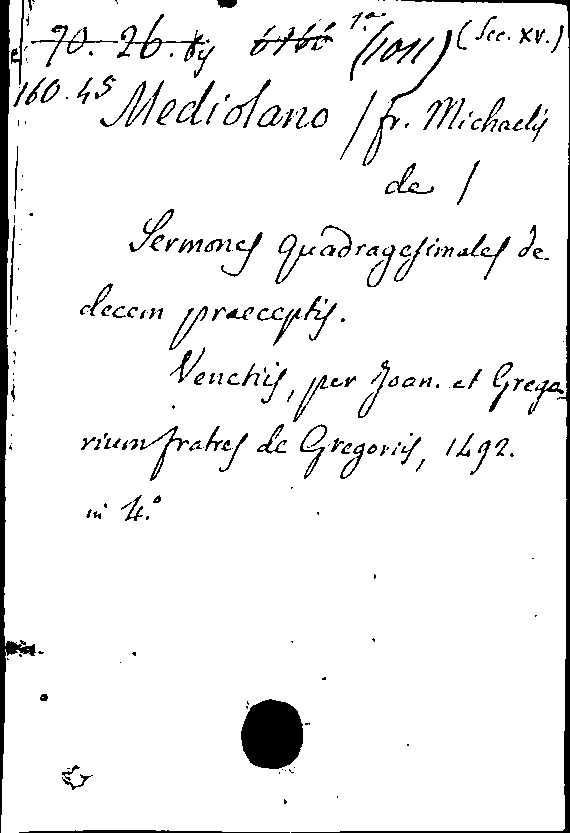 70. 26. 1.a (1011) (Sec. XV.)
160.45
Mediolano / fr. Michaelis
de /
Sermones quadragesimales de
decem praeceptis.
Venetiis, per Joan. et Grego-
rium fratres de Gregoriis, 1492.
in 4.o